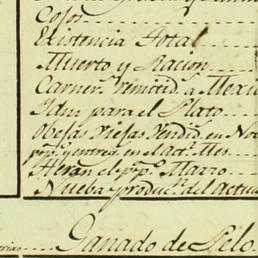 Cojos
Existencia Total
Muerto y Racion
Carner.s remitid.s a Mexic
Idm para el Plato
Obejas Viejas Vendid.s en No
y entreg.s en el act.l Mes
Heran el pp.o Marzo
Nueba produc.n del actua
Ganado de Pelo